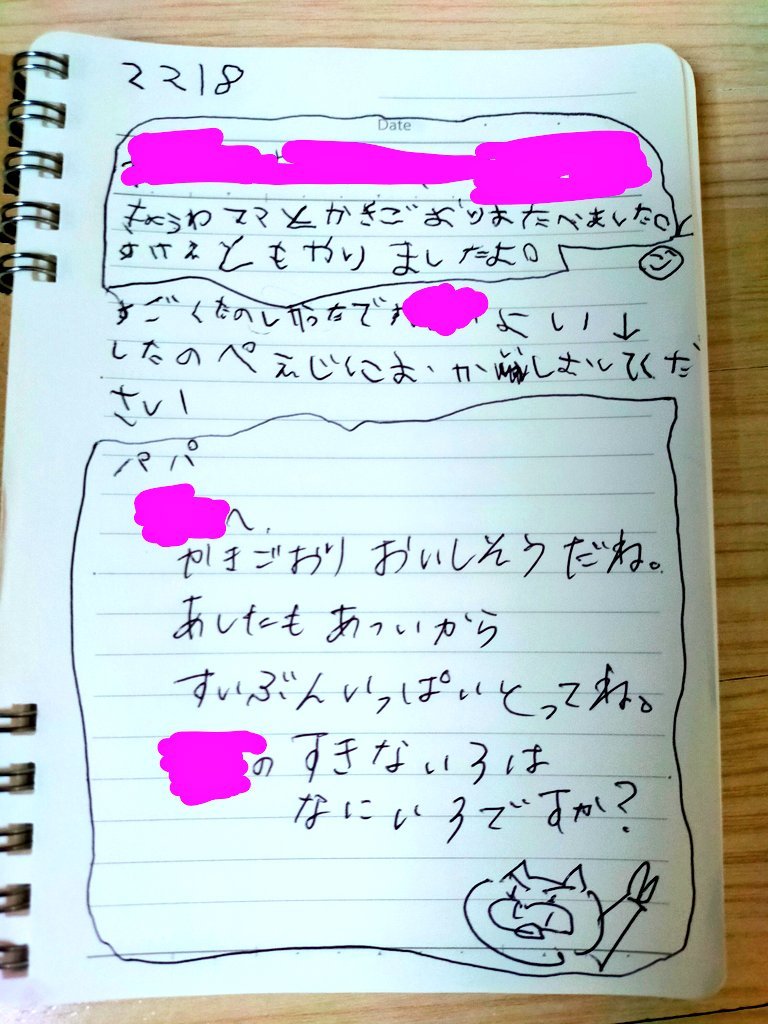 2218
Date
きょうわママとかきごおりおたべました。
すけえともやりましたよ。
すごくたのしかったです よ い ↓
したのぺえじにお かしむいてくだ
さい!
パパ
へ
かきごおり おいしそうだね。
あしたも あついから
すいぶんいっぱいとってね。
の すきないろは
なにいろですか?